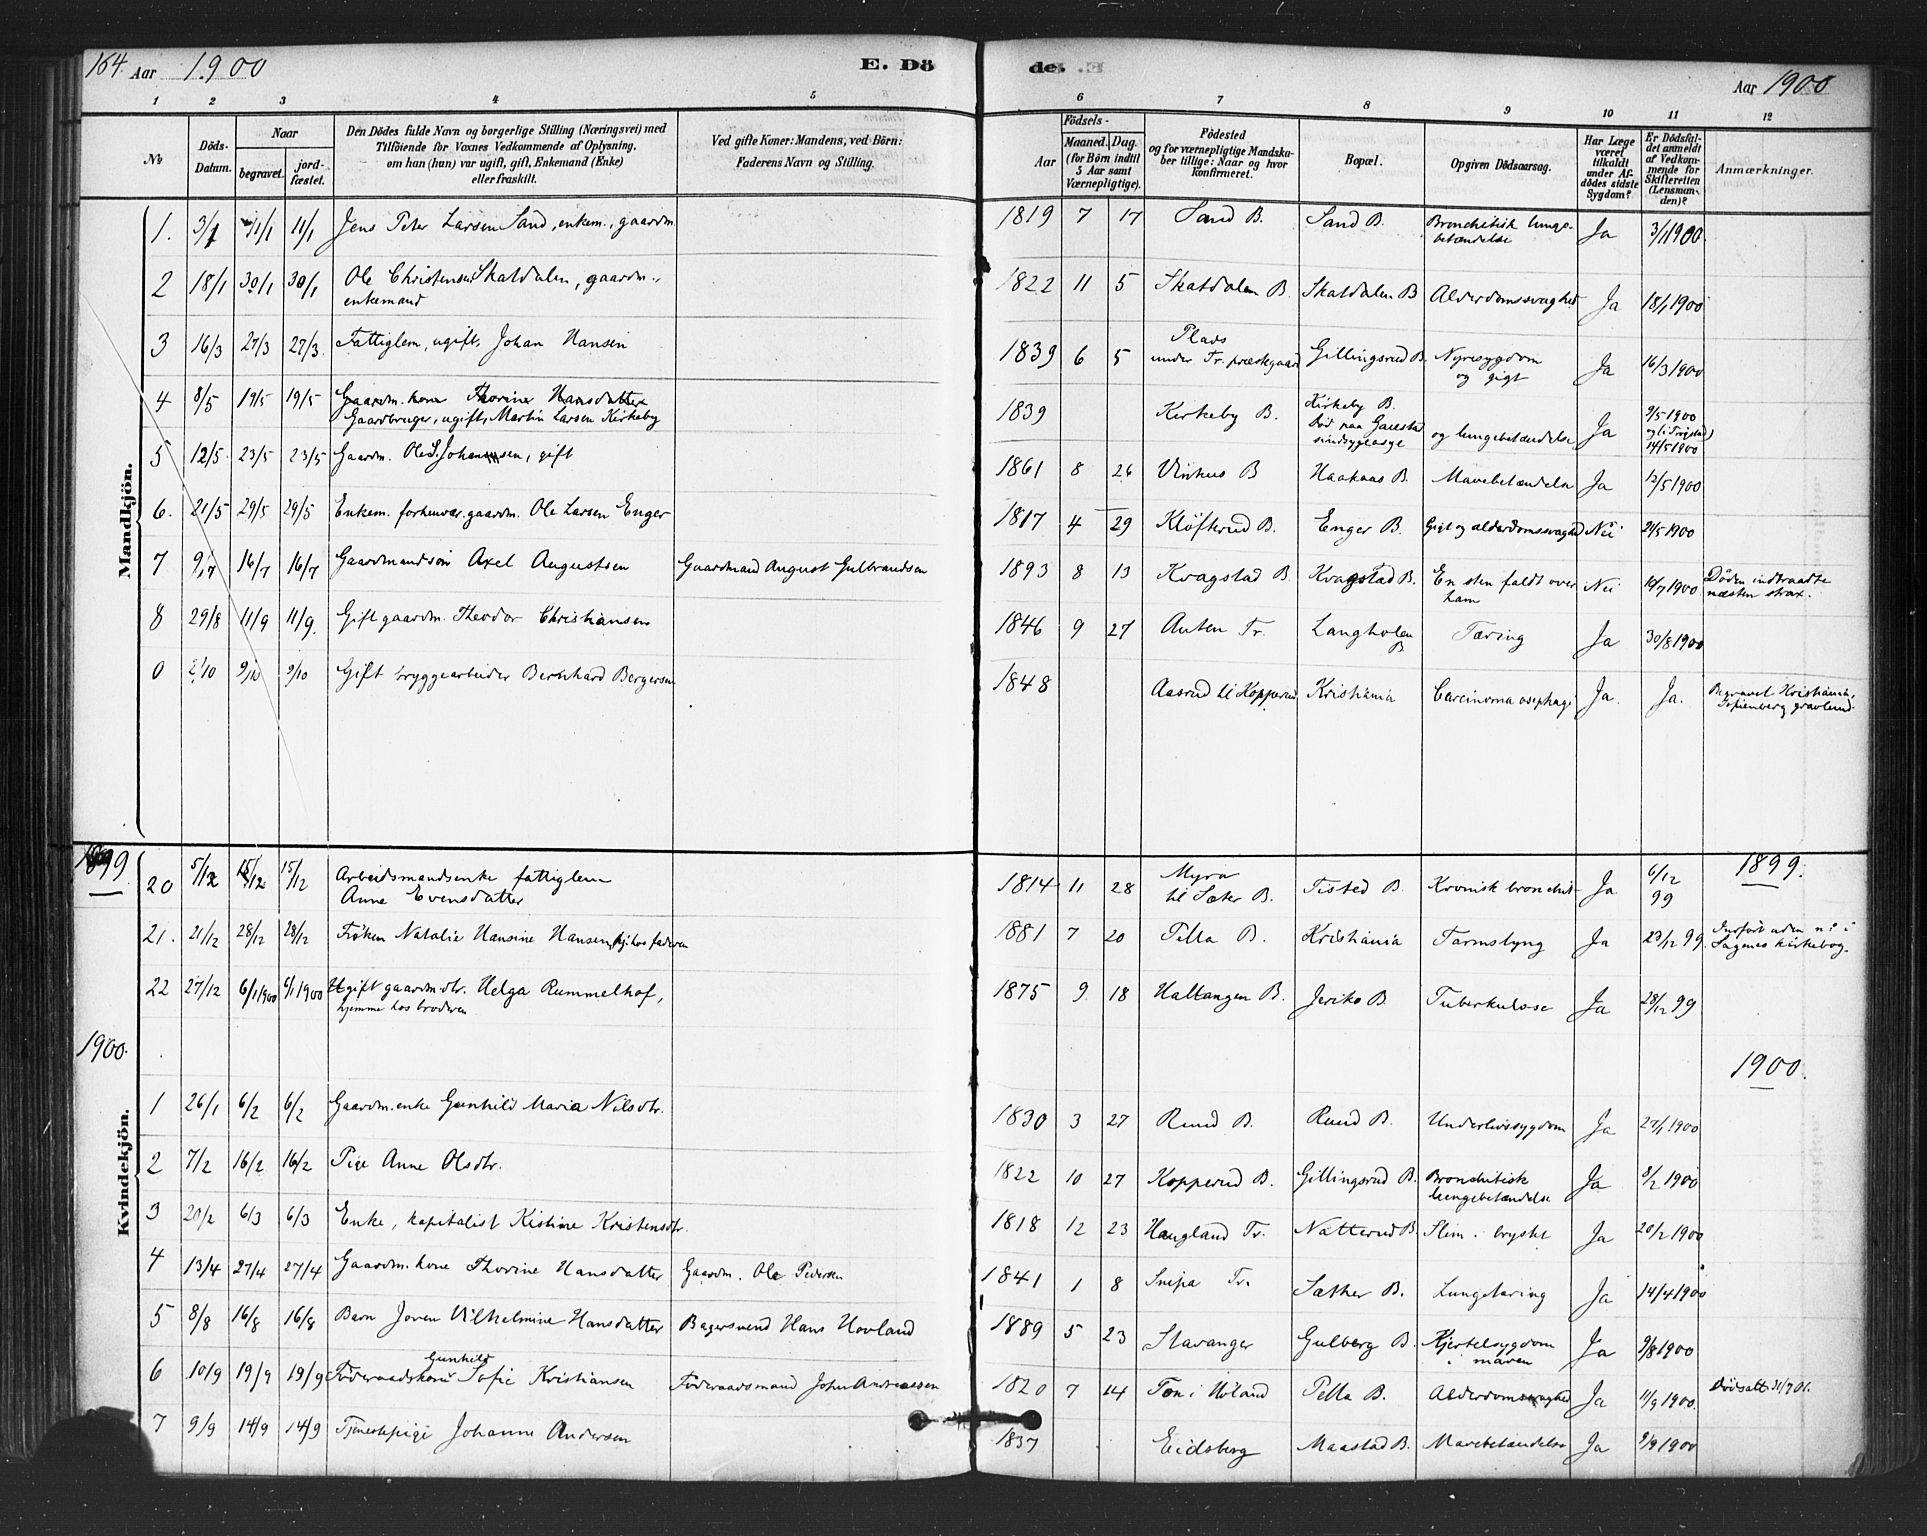 164. Aar 1900 E. Dö
de. Aar 1900
1 2 3 4 5 6 7 8 9 10 11 12
No
Döds-Datum.
Naar
begravet.
jord-fæstet.
Den Dödes fulde Navn og borgerlige Stilling (Næringsvei) med
Tilföiende for Voxnes Vedkommende af Oplysning,
om han (hun) var ugift, gift, Enkemand (Enke)
eller fraskilt.
Ved gifte Koner: Mandens, ved Börn:
Faderens Navn og Stilling.
Födsels-
Aar
Maaned. Dag.
(for Börn indtil
5 Aar samt
Værnepligtige).
Födested
og for værnepligtige Mandska-
ber tillige: Naar og hvor
konfirmeret.
Bopæl.
Opgiven Dödsaarsag.
Har Læge
været
tilkaldt
under Af-
dödes sidste
Sygdom?
Er Dödsfal-
det anmeldt
af Vedkom-
mende for
Skifteretten
(Lensman-
den)?
Anmærkninger.
Mandkjön.
1. 3/1 11/1 11/1 Jens Peter Larsen Sand, enkem., gaardm. 1819 7 17 Sand B. Sand B. Bronchitisk lunge-
betændelse Ja 3/1 1900
2 18/1 30/1 30/1 Ole Christensen Skatdalen, gaardm.,
enkemand 1822 11 5 Skatdalen B. Skatdalen B Alderdomssvaghed Ja 18/1 1900
3 16/3 27/3 27/3 Fattiglem, ugift, Johan Hansen 1839 6 5 Plads
under Tr. præstegaard Gillingsrud B. Nyresygdom
og gigt Ja 16/3 1900
4 8/5 19/5 19/5 Gaardm. kone Thorine Hansdatter
Gaardbruger, ugift, Martin Larsen Kirkeby 1839 Kirkeby B. Kirkeby B.
død paa Gaustad
sindsygeasyl og lungebetændelse Ja 9/5 1900
og (i Trøgstad)
14/5 1900
5 12/5 23/5 23/5 Gaardm. Ole S. Johansen, gift 1861 8 26 B Haakaas B. Mavebetændelse Ja 12/5 1900
6. 21/5 29/5 29/5 Enkem. forhenvær. gaardm. Ole Larsen Enger 1817 4 29 Kløfterud B. Enger B. Gigt og alderdomssvaghed Nei 21/5 1900
7 9/7 16/7 16/7 Gaardmandssøn Axel Augustsen Gaardmand August Gulbrandsen 1893 8 13 Kvagstad B. Kvagstad B. En sten faldt over
ham Nei 10/7 1900 Døden indtraadte
næsten strax.
8 29/8 11/9 11/9. Gift gaardm. Theodor Christiansen 1846 9 27 Auten Tr. Langholen
B Tæring Ja 30/8 1900
0 2/10 9/10 9/10 Gift bryggearbeider Bernhard Bergersen 1848 Aasrud til Kopperud Kristiania Carcinoma osephagi Ja. Ja. Begravet Kristiania,
Sofienberg gravlund.
1899
20 5/12 15/12 15/12 Arbeidsmandsenke fattiglem
Anne Evensdatter 1814 11 28 Myra
til Sæter B. Tisted B. Kronisk bronchit Ja 6/12
99 1899.
21. 21/12 28/12 28/12 Frøken Natalie Hansine Hansen, hj. hos faderen 1881 7 20 Tella B. Kristiania Tarmslyng Ja 23/12 99 Indført uden n: i
Sagenes kirkebog.
22 27/12 6/1 1900 6/1 1900 Ugift gaardm. dtr. Helga Rummelhof,
hjemme hos broderen 1875 9 18 Haltangen B. Jeriko B Tuberkulose Ja 28/12 99
1900. 1900.
Kvindekjön.
1 26/1 6/2 6/2 Gaardm. enke Gunhild Maria Nilsdtr. 1830 3 27 Ruud B. Ruud B. Underlivssygdom Ja 27/1 1900
2 7/2 16/2 16/2 Pige Anne Olsdtr. 1822 10 27 Kopperud B. Gillingsrud B. Bronchitisk
lungebetændelse Ja 8/2 1900
3 20/2 6/3 6/3 Enke, kapitalist Kistine Kristensdtr. 1818 12 23 Haugland Tr. Natterud B. Slim i brystet Ja 20/2 1900
4 13/4 27/4 27/4 Gaardm. kone Thorine Hansdatter Gaardm. Ole Pedersen 1841 1 8 Snipa Tr. Sæther B. Lungetæring Ja 14/4 1900
5 8/8 16/8 16/8 Barn Joren Vilhelmine Hansdatter Bagersvend Hans Hovland 1889 5 23 Stavanger Gulberg B. Kjertelsygdom
i maven Ja 9/8 1900
6 10/9 19/9 19/9 Føderaadskone Gunhild Sofie Kristiansen Føderaadsmand John Andreassen 1820 7 14 Ton i Høland Tella B. Alderdomssvaghed Ja 11/9 1900. Dødsatt. 31/7 01.
7 9/9 14/9 14/9 Tjenestepige Johanne Andersen 1837 Eidsberg Maastad B. Mavebetændelse Ja 9/9 1900